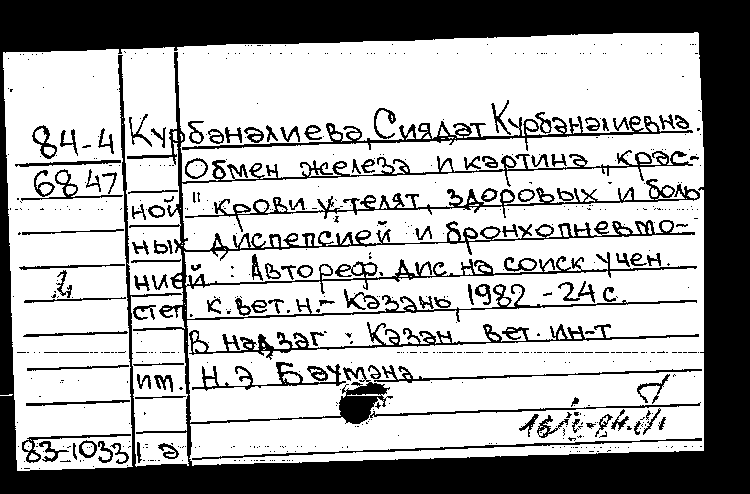 84-4 Курбаналиева, Сиядат Курбаналиевна.
6847 Обмен железа и картина „крас-
ной" крови у телят, здоровых и боль
ных диспепсией и бронхопневмо-
нией. : Автореф. дис. на соиск учен.
степ. к.вет.н. - Казань, 1982. - 24 с.
В надзаг : Казан. вет. ин-т
им. Н. Э Баумана.
83-1033 | а